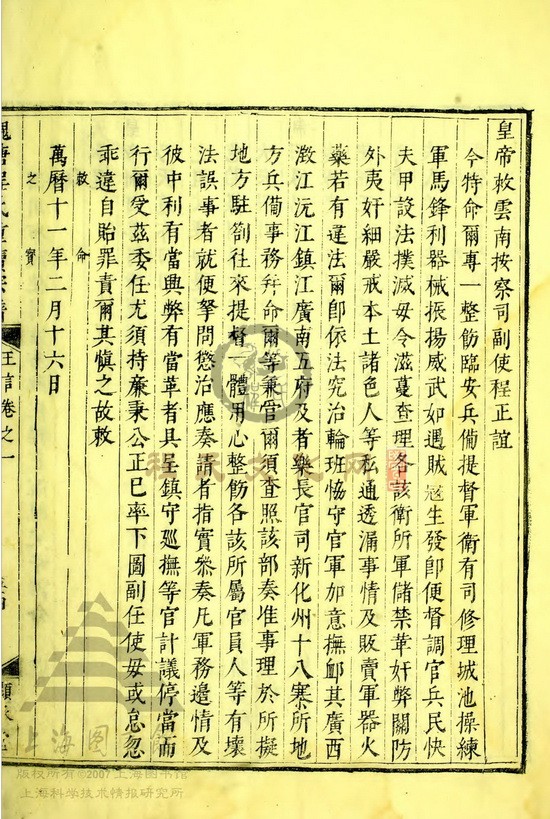 皇帝敕雲南按察司副使程正誼
今特命爾專一整飭臨安兵備提督軍衛有司修理城池操練
軍馬鋒利器械振揚威武如遇賊寇生發即便督調官兵民快
夫甲設法撲滅毋令滋蔓查理各該衛所軍儲禁革奸弊關防
外夷奸細嚴戒本土諸色人等私通透漏事情及販賣軍器火
藥若有違法爾即依法究治輪班恊守官軍加意撫䘏其廣西
澂江沅江鎮江廣南五府及者樂長官司新化州十八寨所地
方兵備事務并命爾等兼管爾須查照該部奏准事理於所擬
地方駐劄往來提督一體用心整飭各該所屬官員人等有壞
法誤事者就便拏問懲治應奏請者指實叅奏凡軍務邊情及
彼中利有當興弊有當革者具呈鎮守廵撫等官計議停當而
行爾受茲委任尤須持廉秉公正已率下圖副任使毋或怠忽
乖違自貽罪責爾其慎之故敕
敕命
之寶
萬曆十一年二月十六日
王言卷之一
程氏文化网
上海图
版权所有©2007上海图书馆
上海科学技术情报研究所